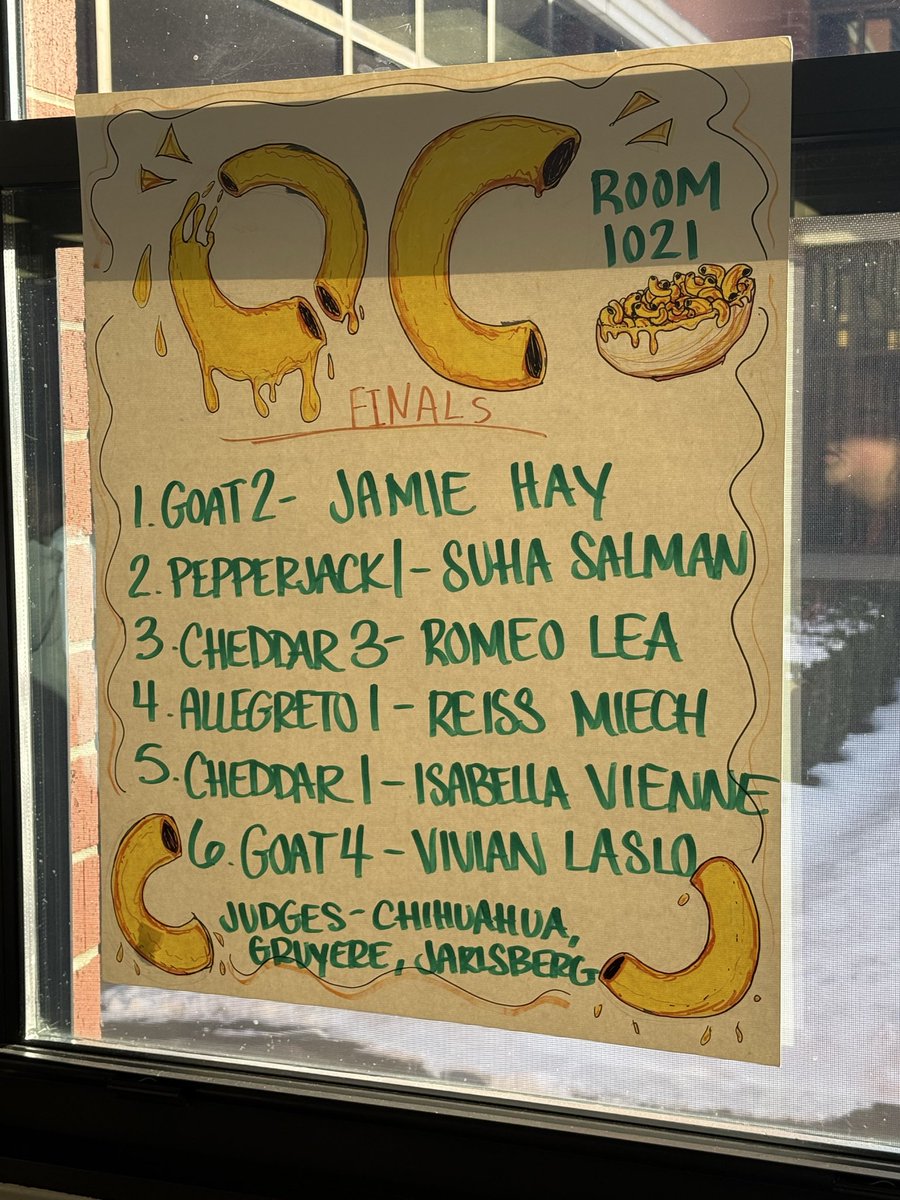 OC
ROOM
1021
FINALS
1. GOAT 2 - JAMIE HAY
2. PEPPERJACK 1 - SUHA SALMAN
3. CHEDDAR 3 - ROMEO LEA
4. ALLEGRETO 1 - REISS MIECH
5. CHEDDAR 1 - ISABELLA VIENNE
6. GOAT 4 - VIVIAN LASLO
JUDGES - CHIHUAHUA,
GRUYERE, JARLSBERG